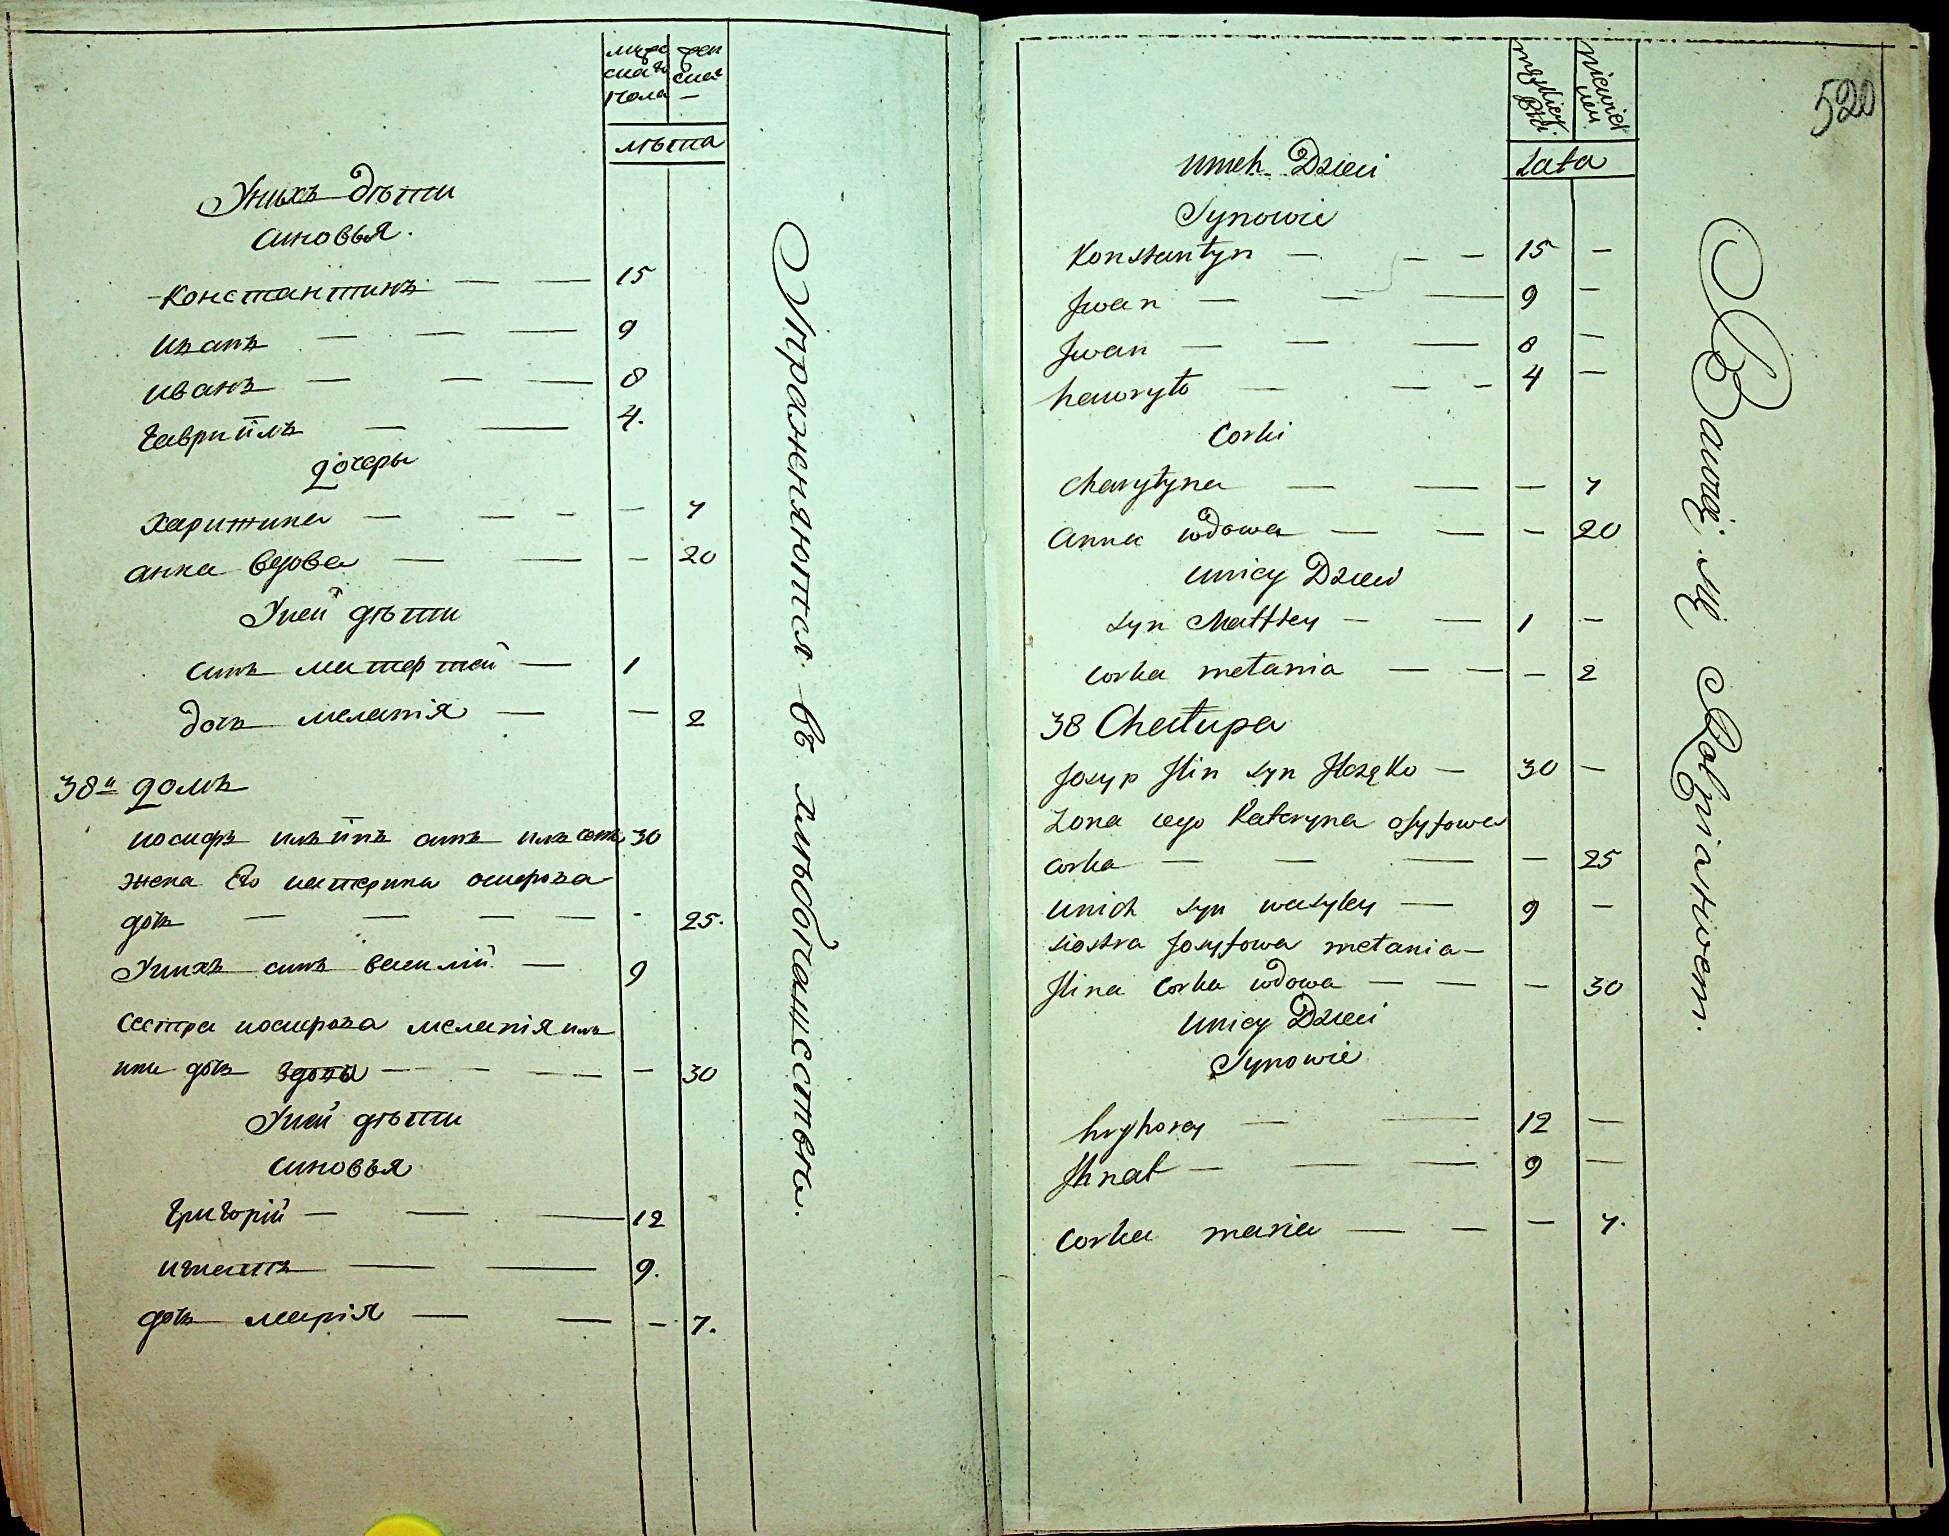 мужескаго пола
женска
лѣта
Унихъ дѣти
синовья.
Константинъ — — 15
иванъ — — — 9
иванъ — — — 8
гавриїлъ — — 4.
дочеры
харитина — — — — 7
анна вдова — — — 20
Уней дѣти
синъ матфтей — 1
дочь меланія — — 2
38й домъ
иосифъ ильїнъ синъ 30
жена Его катерина осифова
дочь — — — — - 25.
Унихъ синъ василій — 9
сестра иосифова меланія иль
ина дочь вдова — — — — — 30
Уней дѣти
синовья
григорій — — — 12
игнатъ — — 9.
дочь марія — — — 7.
Упражняются въ хлѣбопашествѣ.
520
męzkiey płci
niewies
Lata
Unich Dzieci
Synowie
Konstantyn — — — 15 —
Jwan — — — 9 —
Jwan — — — 8 —
hawryło — — - 4 —
Corki
Charytyna — — — 7
Anna wdowa — — — 20
Unicy Dzieci
Syn Mattfey — — 1 —
Corka mełania — — — 2
38 Chałupa
Josyp Jlin syn Jlczęko — 30 —
Zona iego Kateryna osyfowa
corka — — — — 25
Unich syn wasyley — 9 —
siostra Josyfowa mełania —
Jlina Corka wdowa — — — 30
Unicy Dzieci
Synowie
hryhorey — — 12 —
Jhnat — — — 9 —
Corka maria — — — 7.
Bawią się Rolniastwem.